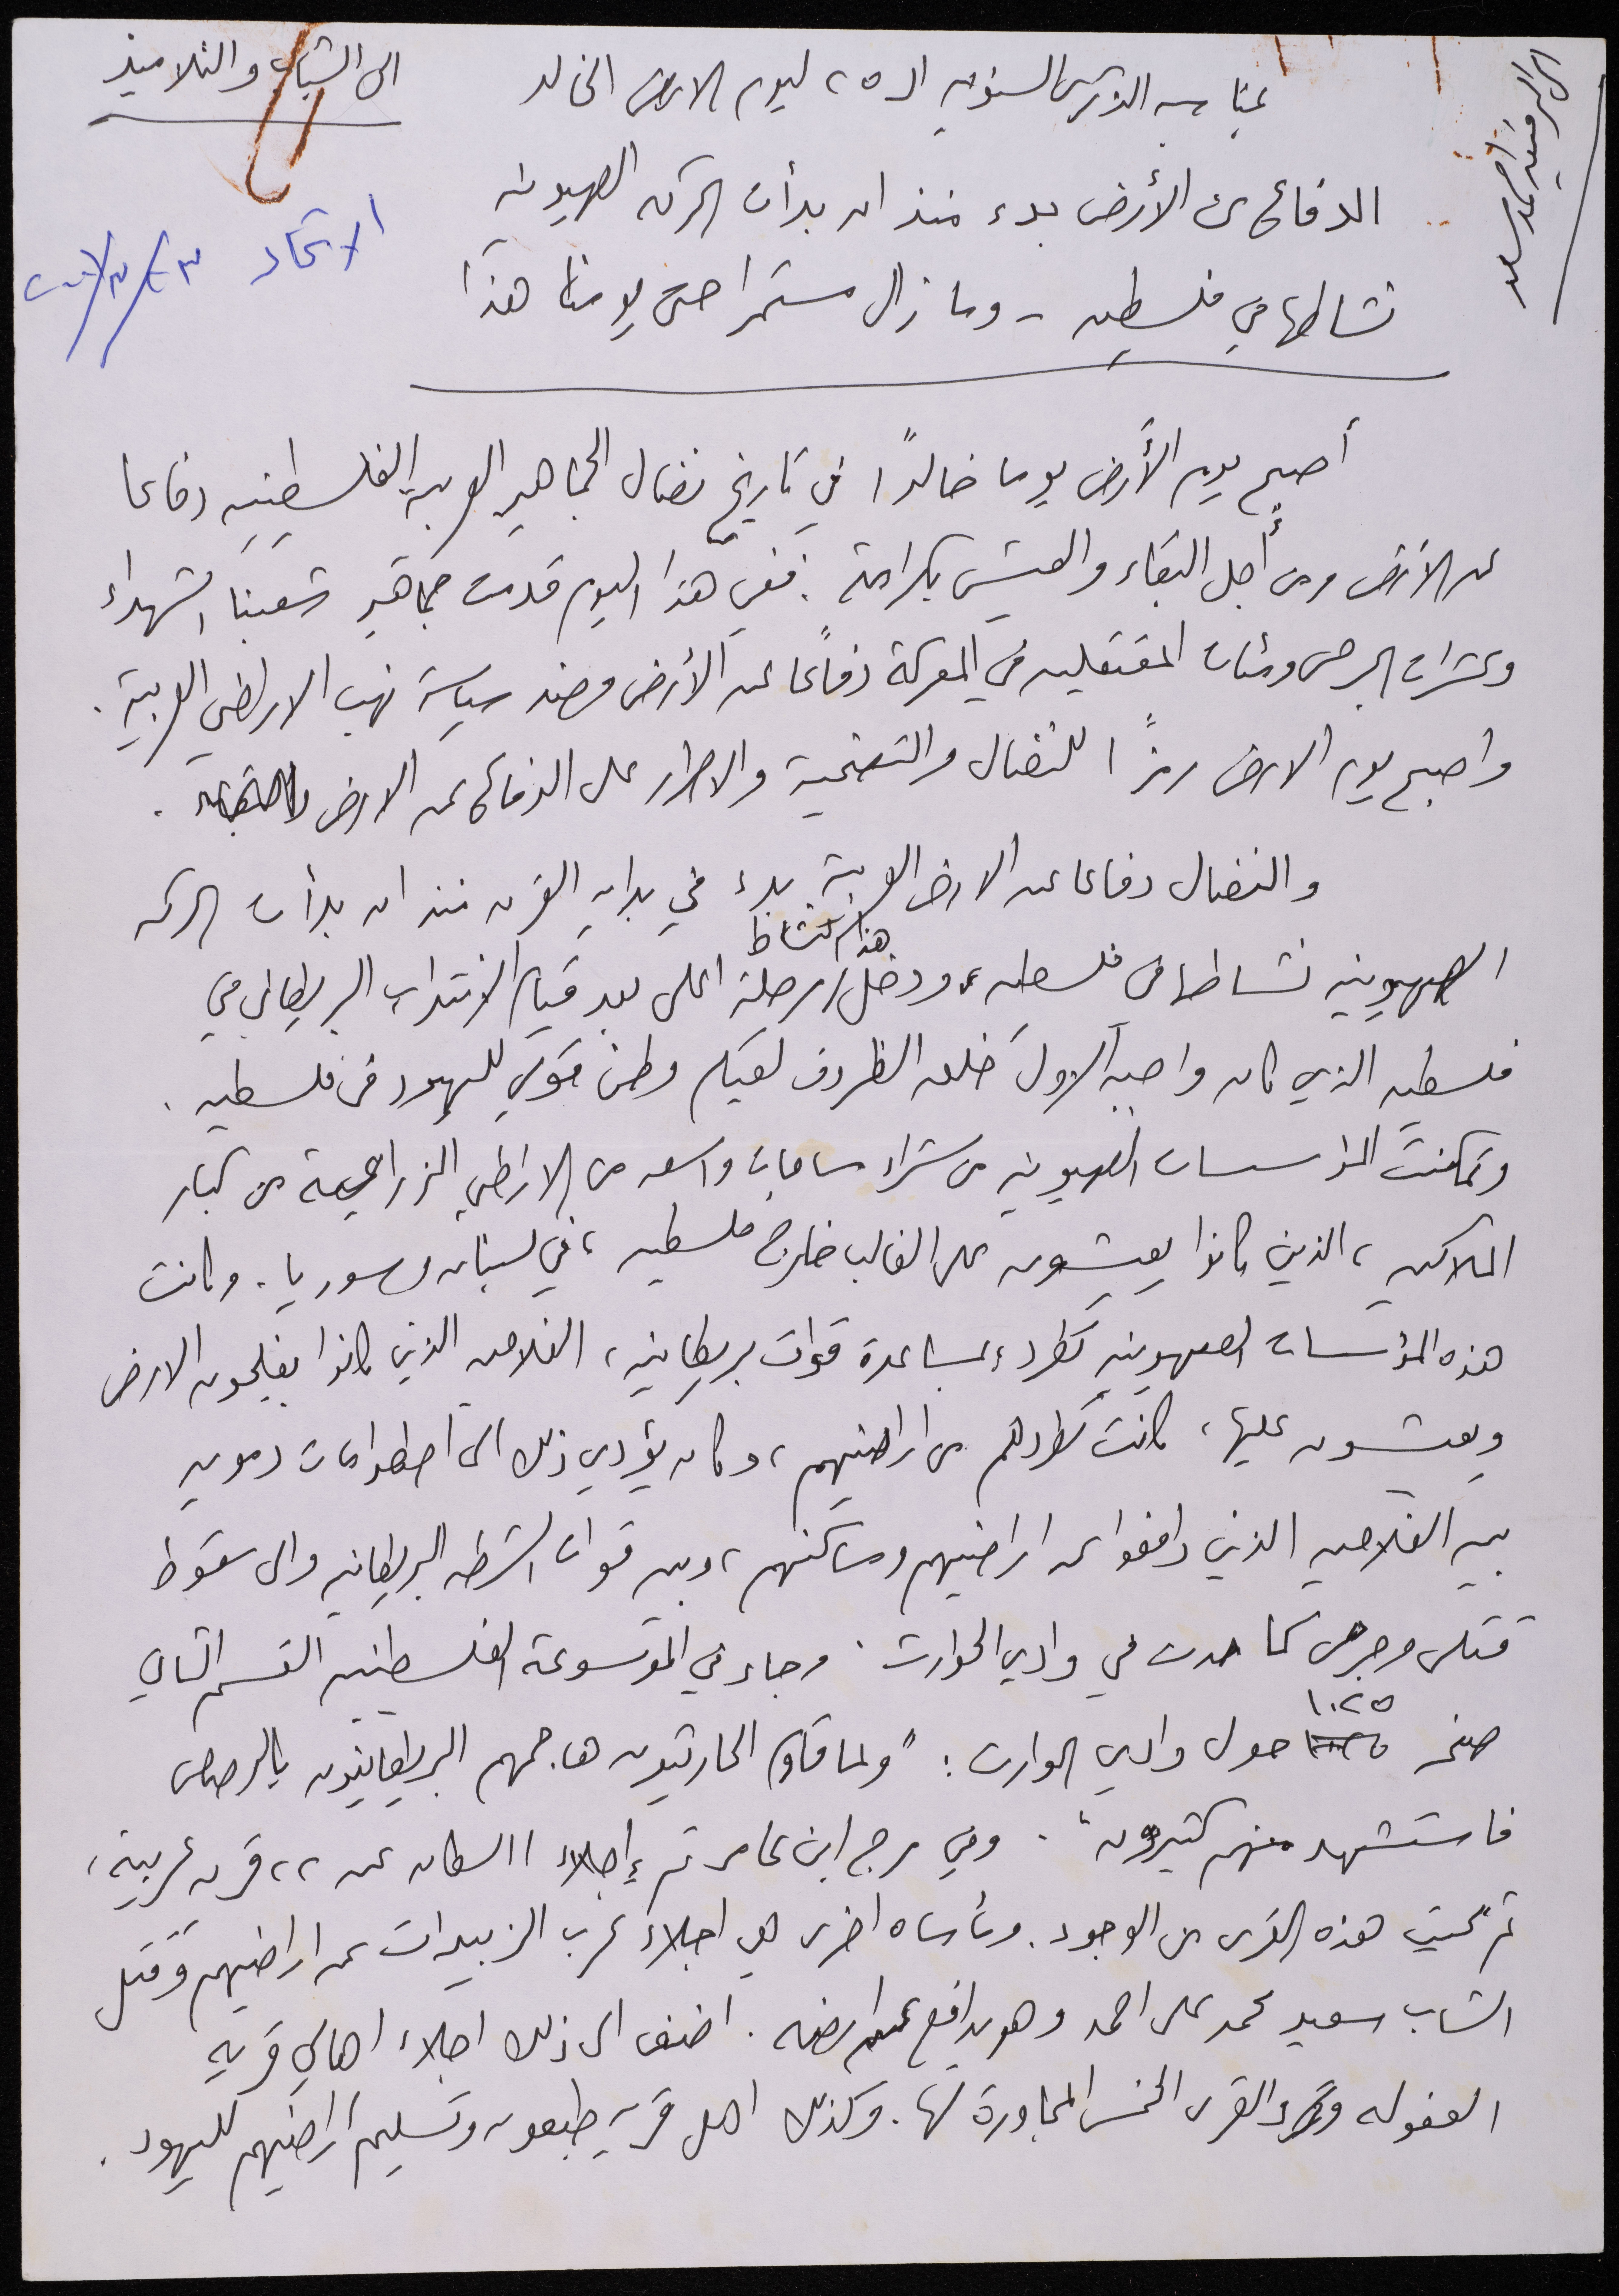 الى الرفيق احمد سعد
الى الشباب والتلاميذ
بمناسبة الذكرى السنوية الـ ٢٥ ليوم الارض الخالد
الدفاع عن الأرض بدء منذ ان بدأت الحركة الصهيونية
الاتحاد
نشاطها في فلسطين - وما زال مستمرا حتى يومنا هذا
أصبح يوم الأرض يوما خالدًا في تاريخ نضال الجماهير العربية الفلسطينية دفاعا
عن الأرض ومن أجل البقاء والعيش بكرامة. ففي هذا اليوم قدمت جماهير شعبنا الشهداء
وعشرات الجرحى ومئات المعتقلين في المعركة دفاعًا عن الأرض وضد سياسة نهب الاراضي العربية.
واصبح يوم الارض رمزًا للنضال والتضحية والاصرار على الدفاع عن الارض
والنضال دفاعا عن الارض العربية بدء في بداية القرن منذ ان بدأت الحركة
الصهيونية نشاطها في فلسطين، ودخل هذا النشاط مرحلة اعلى بعد قيام الانتداب البريطاني في
فلسطين الذي كان واجبه الاول خلق الظروف لقيام وطن قومي لليهود في فلسطين.
وتمكنت المؤسسات الصهيونية من شراء مساحات واسعه من الاراضي الزراعية من كبار
الملاكين، الذين كانوا يعيشون على الغالب خارج فلسطين، في لبنان وسوريا. وكانت
هذه المؤسسات الصهيونية تطرد، بمساعدة قوات بريطانية، الفلاحين الذين كانوا يفلحون الارض
ويعيشون عليها، كانت تطردهم من اراضيهم، وكان يؤدي ذلك الى اصطدامات دموية
بين الفلاحين الذين دافعوا عن اراضيهم ومساكنهم، وبين قوات الشرطه البريطانيه والى سقوط
قتلى وجرحى كما حدث في وادي الحوارث. وجاء في الموسوعة الفلسطينيه القسم الثاني
صفحه ١٠٢٥ حول وادي الحوارث: "ولما قاوم الحارثيون هاجمهم البريطانيون بالرصاص
فاستشهد منهم كثيرون". وفي مرج ابن عامر تم إجلاء السكان عن ٢٢ قرية عربية،
ثم محيت هذه القرى من الوجود. ومأساه اخرى هي اجلاء عرب الزبيدات عن اراضيهم وقتل
الشاب سعيد محمد علي احمد وهو يدافع عن ارضه. اضف الى ذلك اجلاء اهالي قرية
العفوله والقرى الخمس المجاورة لها. وكذلك اهل قرية طبعون وتسليم اراضيهم لليهود.